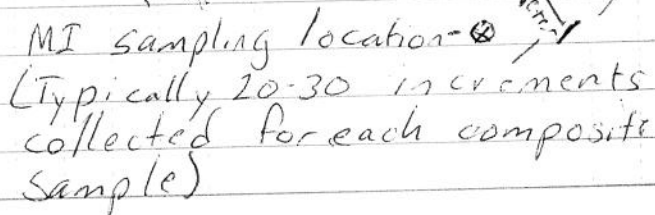 MI sampling location-⊗
(Typically 20-30 increments
collected for each composite
sample)